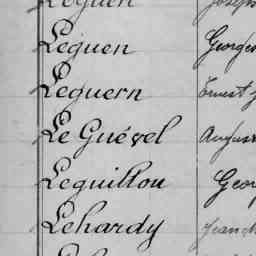 Leguen
Leguen Georges
Leguern Ernest J
Le Guével August
Lequillou Geor
Lehardy Jean M